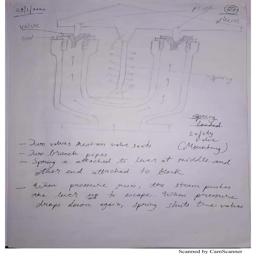 valve
spring
spring
loaded
safety
valve
(Mounting)
- Two valves rest on valve seats
- Two branch pipes
- Spring is attached to lever at middle and
other end attached to block
- When pressure rises, the steam pushes
the lever up to escape. When pressure
drops down again, spring shuts the valves
Scanned by CamScanner